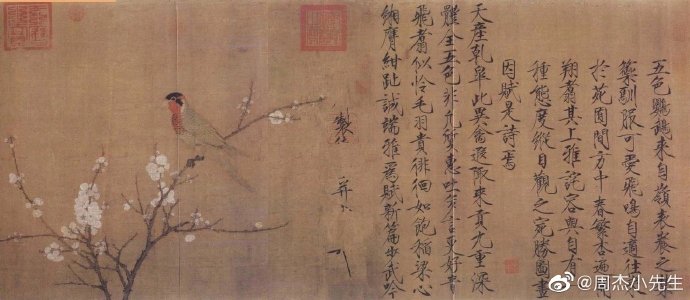 五色鸚鵡來自嶺表養之
籞馴服可愛飛鳴自適往
於苑囿間方中春繁杏遍
翔翥其上雅詫容與自有
種態度縱目觀之宛勝圖畫
因賦是詩焉
天產乾皐此異禽遐陬來貢九重深
體全五色非凡質惠吐多言更好音
飛翥似怜毛羽貴徘徊如飽稻粱心
緗膺紺趾誠端雅為賦新篇步武吟
製
并
@周杰小先生